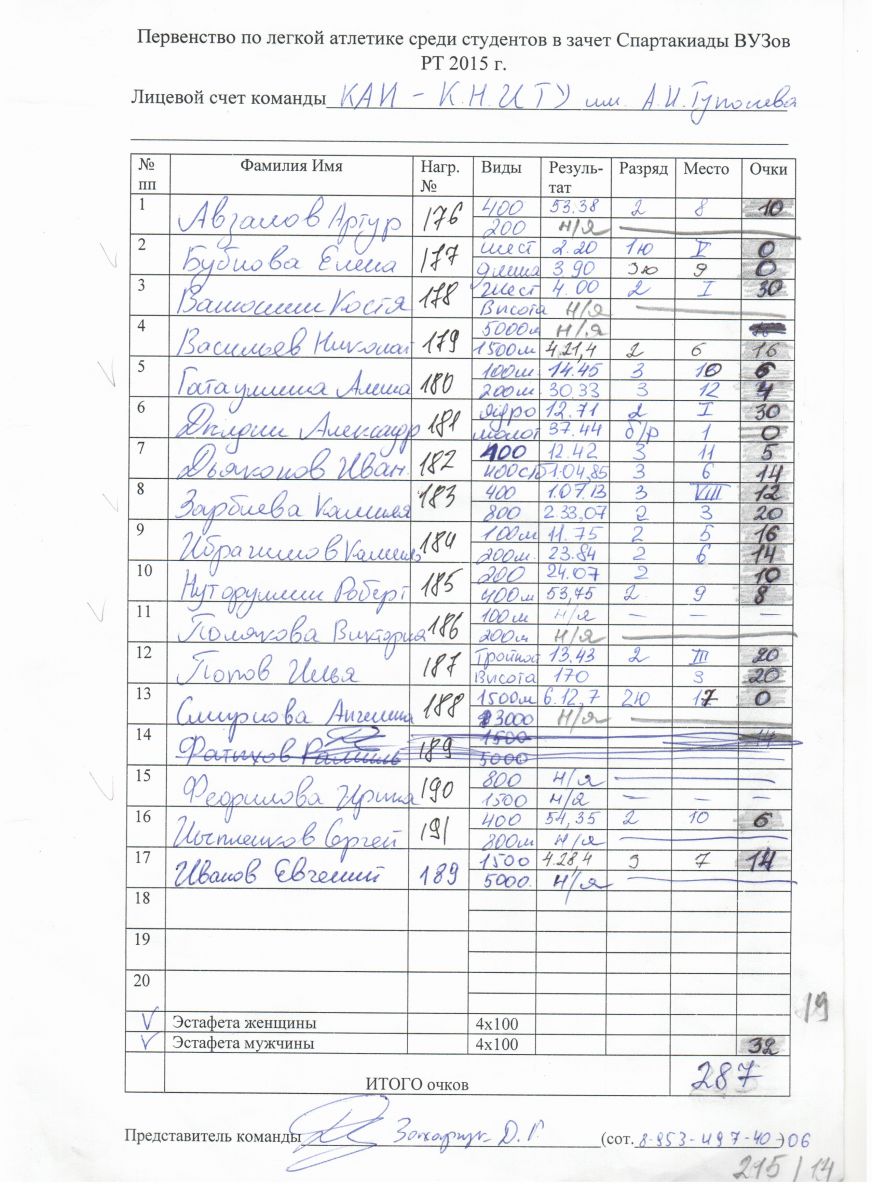 Первенство по легкой атлетике среди студентов в зачет Спартакиады ВУЗов
РТ 2015 г.
Лицевой счет команды КАИ - К.Н.И(Т)У им. А.Н.Туполева
№ пп Фамилия Имя Нагр. № Виды Резуль-тат Разряд Место Очки
1 Авзалов Артур 176 400 53.38 2 8 10
200 н/я
2 Бубнова Елена 177 шест 2.20 1ю V 0
длина 3.90 3ю 9 0
3 Костя 178 шест 4.00 2 I 30
Высота н/я
4 Васильев Николай 179 5000м н/я
1500м 4.21,4 2 6 16
5 Гатауллина Алина 180 100м 14.45 3 10 6
200м 30.33 3 12 4
6 Александр 181 ядро 12.71 2 I 30
молот 37.44 б/р 1 0
7 Дьяконов Иван 182 100 12.42 3 11 5
400с/б 1.04,85 3 6 14
8 Зарбиева Камиля 183 400 1.07.13 3 VIII 12
800 2.33,07 2 3 20
9 Ибрагимов Камиль 184 100м 11.75 2 5 16
200м. 23.84 2 6 14
10 Роберт 185 200 24.07 2 10
400м 53,75 2 9 8
11 Полякова Виктория 186 100м н/я — — —
200м н/я
12 Попов Илья 187 Тройной 13.43 2 III 20
Высота 170 3 20
13 Смирнова Ангелина 188 1500м 6.12,7 2ю 17 0
3000 н/я
14 Фатыхов Рамиль 189 1500 14
5000
15 Федрилова Ирина 190 800 н/я
1500 н/я — — —
16 Цыпленков Сергей 191 400 54,35 2 10 6
800м н/я
17 Иванов Евгений 189 1500 4.28,4 3 7 14
5000. н/я
18
19
20
19
Эстафета женщины 4х100
Эстафета мужчины 4х100 32
ИТОГО очков 287
Представитель команды Д. Г. (сот. 8-953-497-40-06
215/14